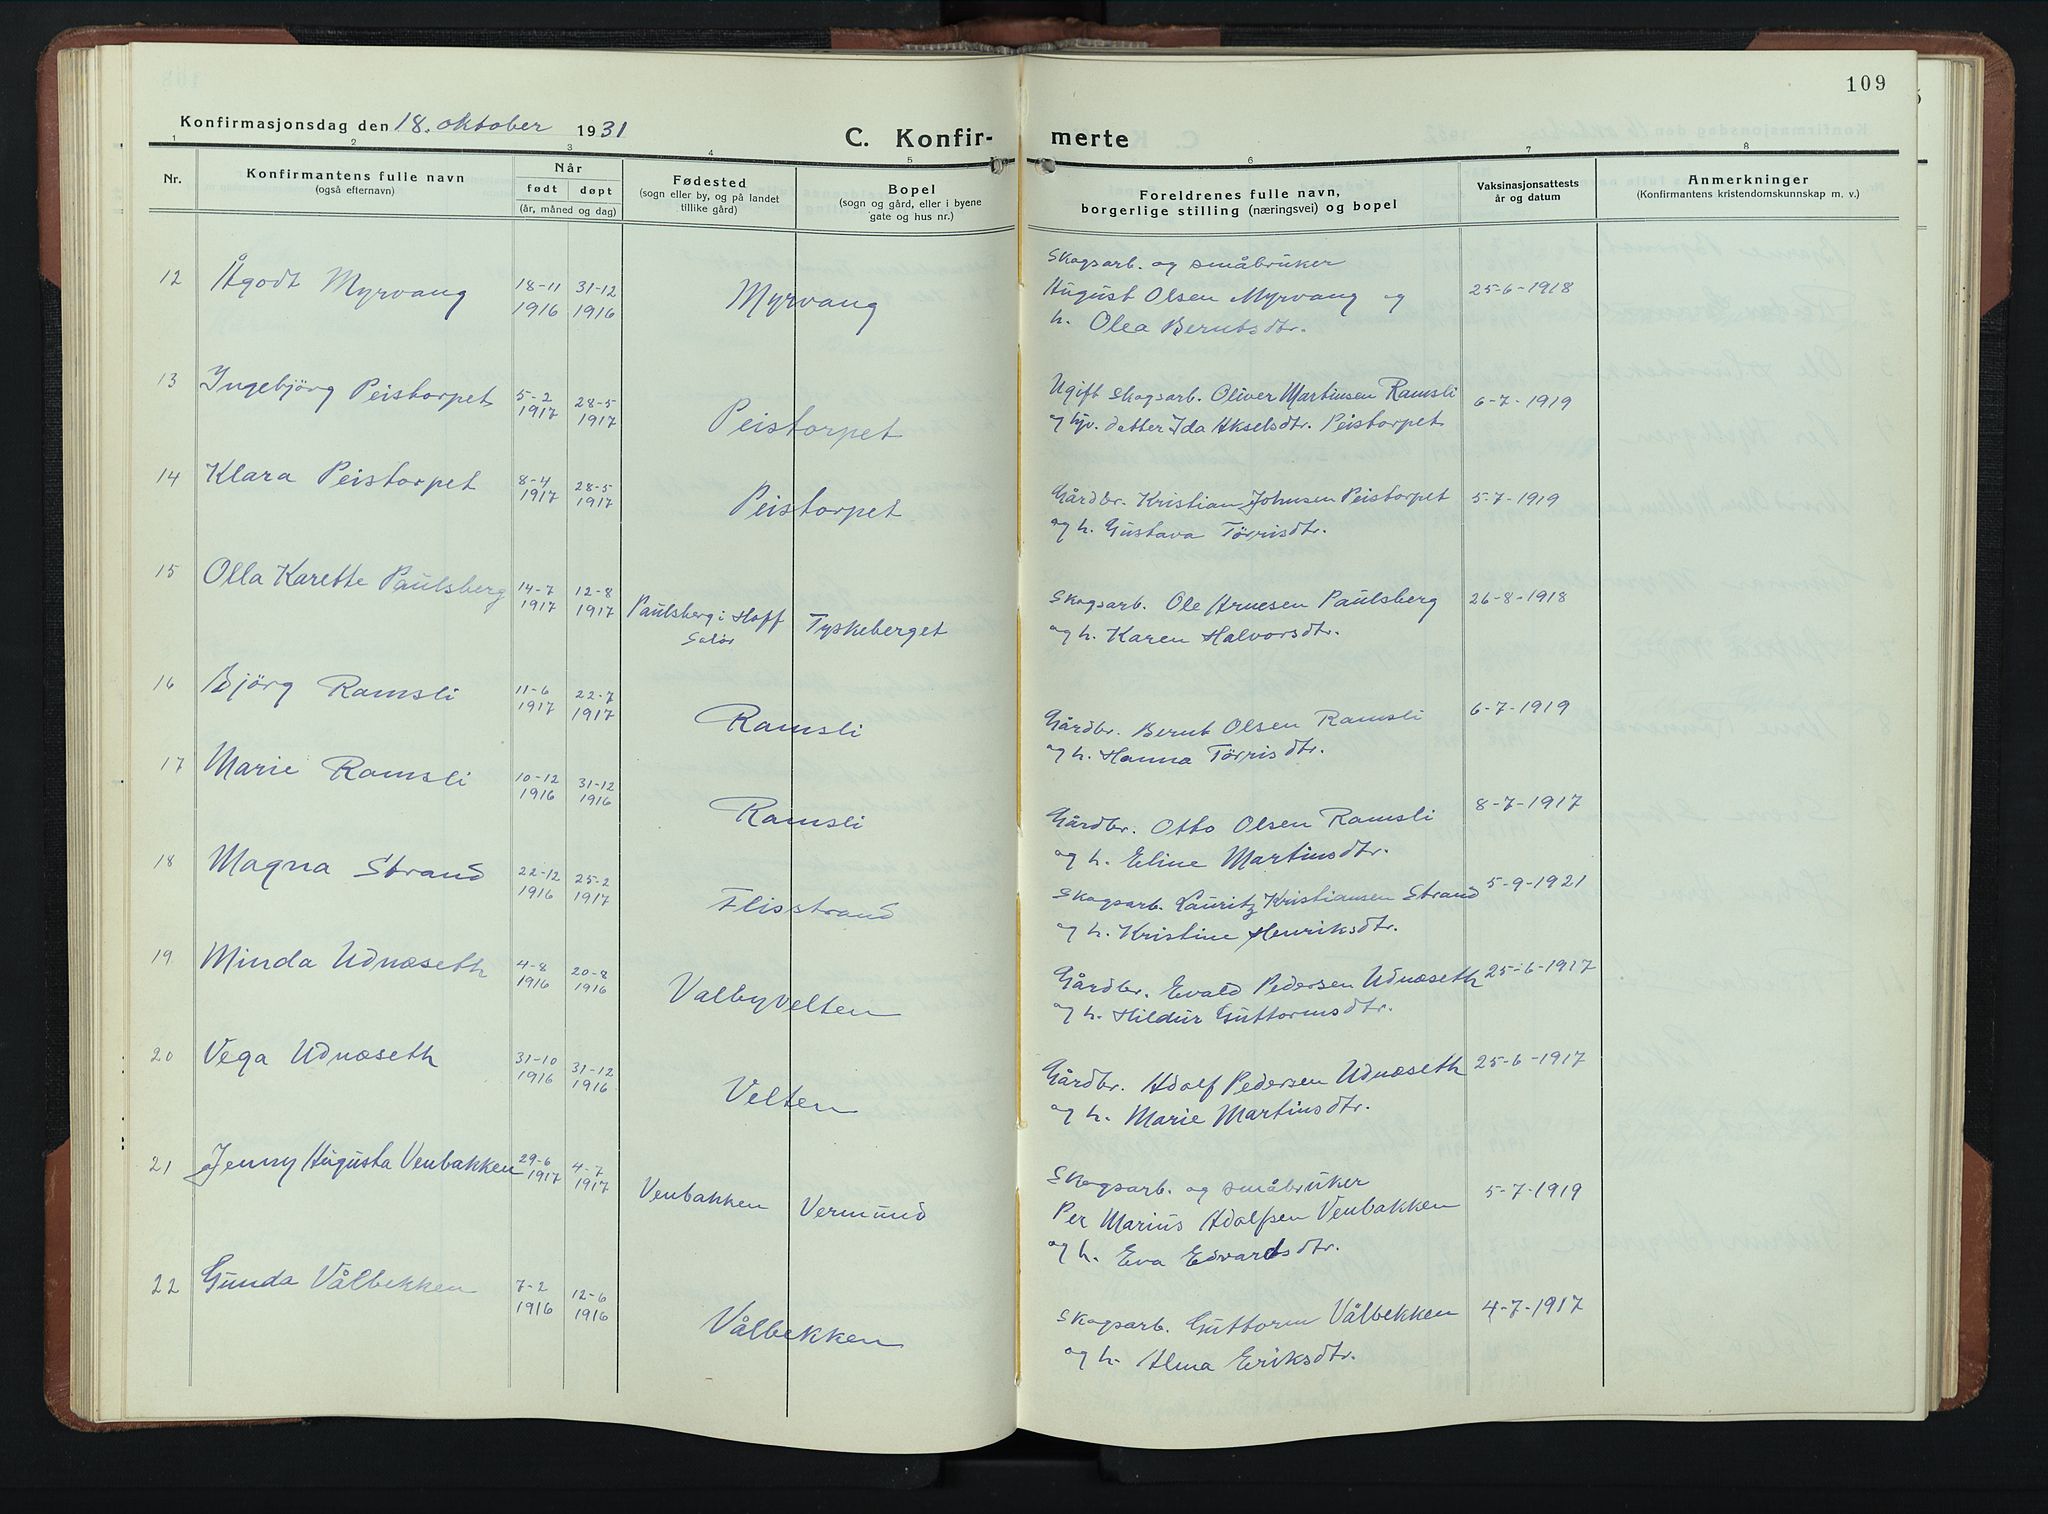 109
Konfirmasjonsdag den 18. oktober 1931
C. Konfir- merte
1 2 3 4 5 6 7 8
Nr.
Konfirmantens fulle navn
(også efternavn)
Når
født døpt
(år, måned og dag)
Fødested
(sogn eller by, og på landet
tillike gård)
Bopel
(sogn og gård, eller i byene
gate og hus nr.)
Foreldrenes fulle navn,
borgerlige stilling (næringsvei) og bopel
Vaksinasjonsattests
år og datum
Anmerkninger
(Konfirmantens kristendomskunnskap m. v.)
12 Ågodt Myrvang 18-11 1916 31-12 1916 Myrvang
Skogsarb. og småbruker
August Olsen Myrvang og
h. Olea Berntsdtr.
25-6-1918
13 Ingebjörg Peistorpet 5-2 1917 28-5 1917 Peistorpet
Ugift skogsarb. Oliver Martinsen Ramsli
og hjv. datter Ida Akselsdtr. Peistorpet
6-7-1919
14 Klara Peistorpet 8-4 1917 28-5 1917 Peistorpet
Gårdbr. Kristian Johnsen Peistorpet
og h. Gustava Tørrisdtr.
5-7-1919
15 Olla Karette Paulsberg 14-7 1917 12-8 1917 Paulsberg i Hoff Solør Tyskeberget
Skogsarb. Ole Arnesen Paulsberg
og h. Karen Halvorsdtr.
26-8-1918
16 Björg Ramsli 11-6 1917 22-7 1917 Ramsli
Gårdbr. Bernt Olsen Ramsli
og h. Hanna Tørrisdtr.
6-7-1919
17 Marie Ramsli 10-12 1916 31-12 1916 Ramsli
Gårdbr. Otto Olsen Ramsli
og h. Eline Martinsdtr.
8-7-1917
18 Magna Strand 22-12 1916 25-2 1917 Flisstrand
Skogsarb. Lauritz Kristiansen Strand
og h. Kristine Henriksdtr.
5-9-1921
19 Minda Udnæseth 4-8 1916 20-8 1916 Valbyvelten
Gårdbr. Evald Pedersen Udnæseth
og h. Hildur Guttormsdtr.
25-6-1917
20 Vega Udnæseth 31-10 1916 31-12 1916 Velten
Gårdbr. Adolf Pedersen Udnæseth
og h. Marie Martinsdtr.
25-6-1917
21 Jenny Augusta Venbakken 29-6 1917 4-7 1917 Venbakken Vermund
Skogsarb. og småbruker
Per Marius Adolfsen Venbakken
og h. Eva Edvardsdtr.
5-7-1919
22 Gunda Vålbekken 7-2 1916 12-6 1916 Vålbekken
Skogsarb. Guttorm Vålbekken
og h. Alma Eriksdtr.
4-7-1917